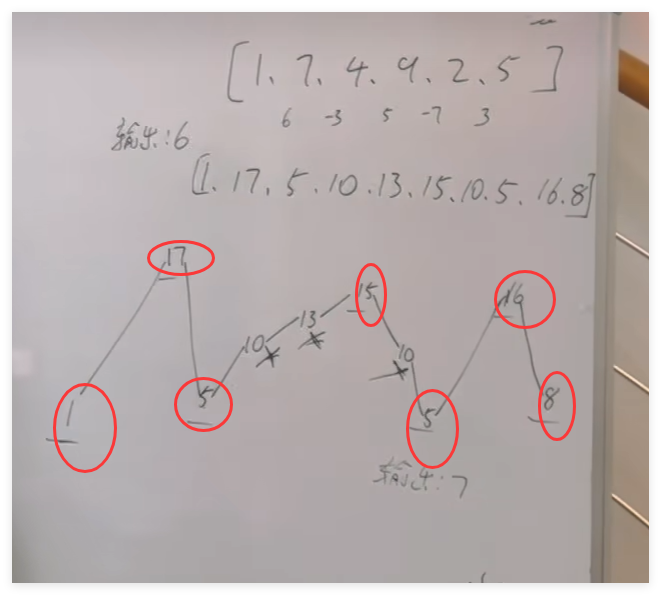 [1、7、4、9、2、5]
6 -3 5 -7 3
输出:6
[1、17、5、10、13、15、10、5、16、8]
17
15
16
13
10
10
5
8
1
5
输出:7